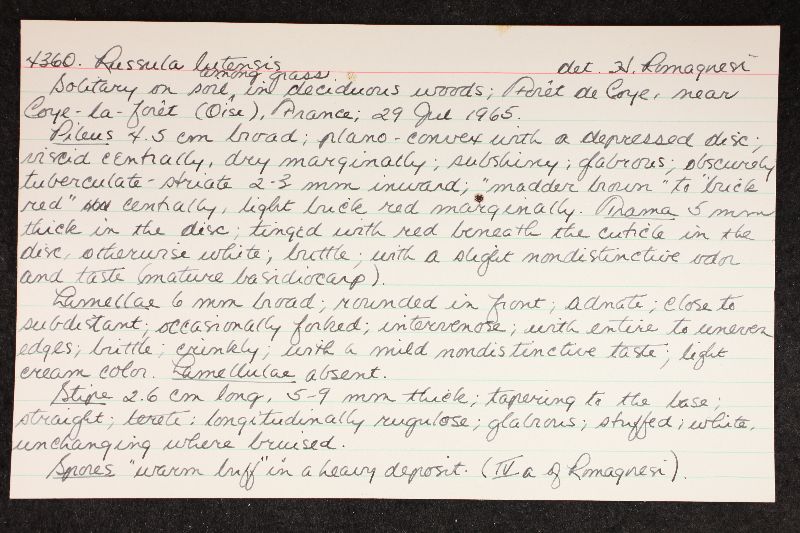 4360. Russula lutensis det. H. Romagnesi
among grass.
Solitary on soil, in deciduous woods; Forêt de Coye, near
Coye-la-forêt (Oise), France; 29 Jul 1965.
Pileus 4.5 cm broad; plano-convex with a depressed disc;
viscid centrally, dry marginally; subshiny; glabrous; obscurely
tuberculate-striate 2-3 mm inward; "madder brown" to "brick
red" centrally, light brick red marginally. Trama 5 mm
thick in the disc; tinged with red beneath the cuticle in the
disc, otherwise white; brittle; with a slight nondistinctive odor
and taste (mature basidiocarp).
Lamellae 6 mm broad; rounded in front; adnate; close to
subdistant; occasionally forked; intervenose; with entire to uneven
edges; brittle; crinkly; with a mild nondistinctive taste; light
cream color. Lamellulae absent.
Stipe 2.6 cm long, 5-9 mm thick; tapering to the base;
straight; terete; longitudinally rugulose; glabrous; stuffed; white,
unchanging where bruised.
Spores "warm buff" in a heavy deposit. (IV a of Romagnesi).